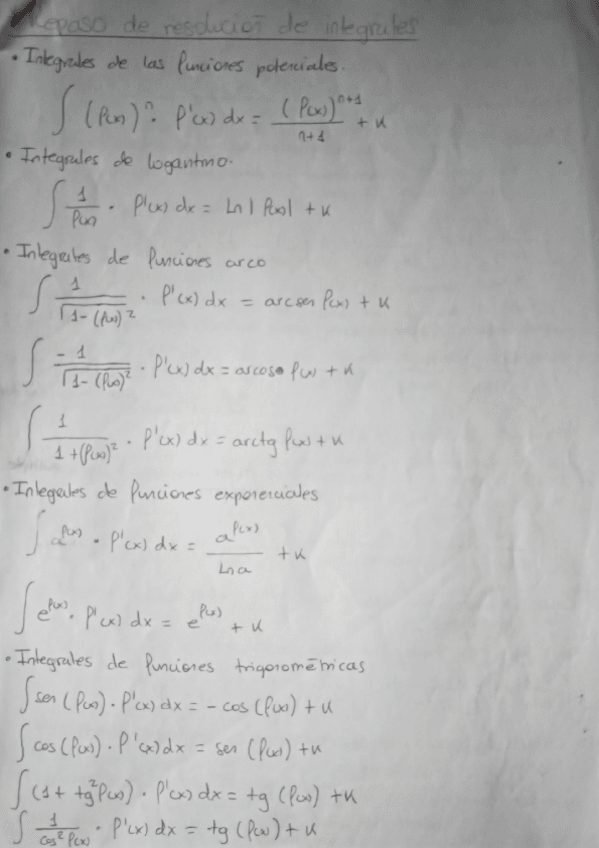 Repaso de resolución de integrales
• Integrales de las funciones potenciales.
∫ (f(x))ⁿ · f'(x) dx = (f(x))ⁿ⁺¹ / n+1 + k
• Integrales de logaritmo.
∫ 1/f(x) · f'(x) dx = Ln |f(x)| + k
• Integrales de funciones arco
∫ 1/√(1-(f(x))²) · f'(x) dx = arcsen f(x) + k
∫ -1/√(1-(f(x))²) · f'(x) dx = arcoso f(x) + k
∫ 1/(1+(f(x))²) · f'(x) dx = arctg f(x) + k
• Integrales de funciones exponenciales
∫ a^f(x) · f'(x) dx = a^f(x) / Ln a + k
∫ e^f(x) · f'(x) dx = e^f(x) + k
• Integrales de funciones trigonométricas
∫ sen (f(x)) · f'(x) dx = - cos (f(x)) + k
∫ cos (f(x)) · f'(x) dx = sen (f(x)) + k
∫ (1 + tg² f(x)) · f'(x) dx = tg (f(x)) + k
∫ 1/cos² f(x) · f'(x) dx = tg (f(x)) + k